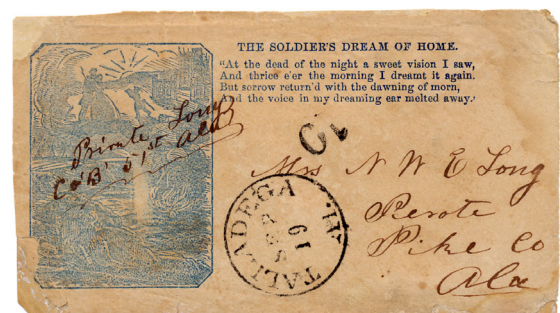 THE SOLDIER'S DREAM OF HOME.
"At the dead of the night a sweet vision I saw,
And thrice e'er the morning I dreamt it again.
But sorrow return'd with the dawning of morn,
And the voice in my dreaming ear melted away."
Private Long
Co 'B' 51st Ala
10
Mrs N W E Long
Perote
Pike Co
Ala
TALLADEGA AL.
SEP
19